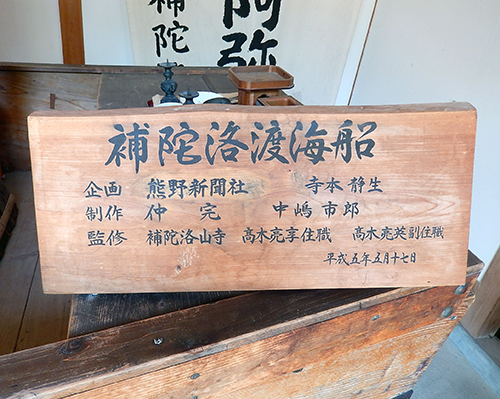 補陀
阿弥
補陀洛渡海船
企画 熊野新聞社 寺本静生
制作 仲 完 中嶋市郎
監修 補陀洛山寺 髙木亮享住職 髙木亮英副住職
平成五年五月十七日